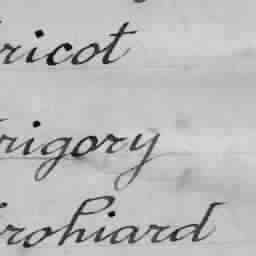 ricot
rigory
rohiard